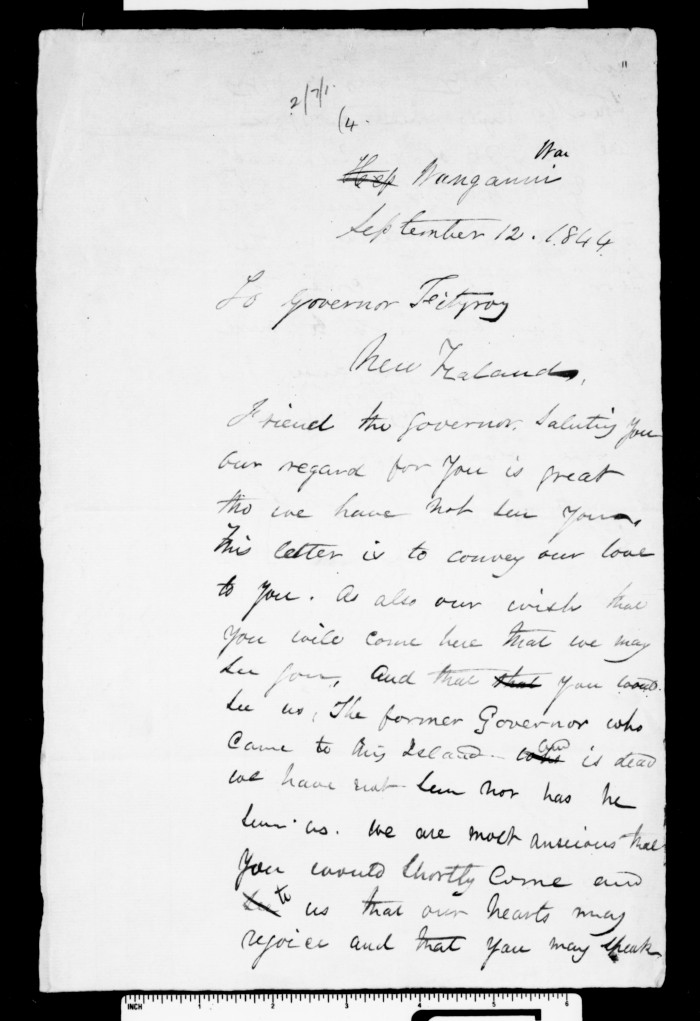 2/7/1.
(4.
Wai
Wanganui
September 12. 1844.
To Governor Fitzroy
New Zealand,
Friend the Governor. Saluting you
our regard for you is great
tho we have not seen you,
This letter is to convey our love
to you. As also our wish that
you will come here that we may
see you, And that that you would
see us, The former Governor who
came to this Island who is dead
we have not seen nor has he
seen us. We are most anxious that
you would shortly come and
see to us that our hearts may
rejoice and that you may speak
INCH 1 2 3 4 5 6